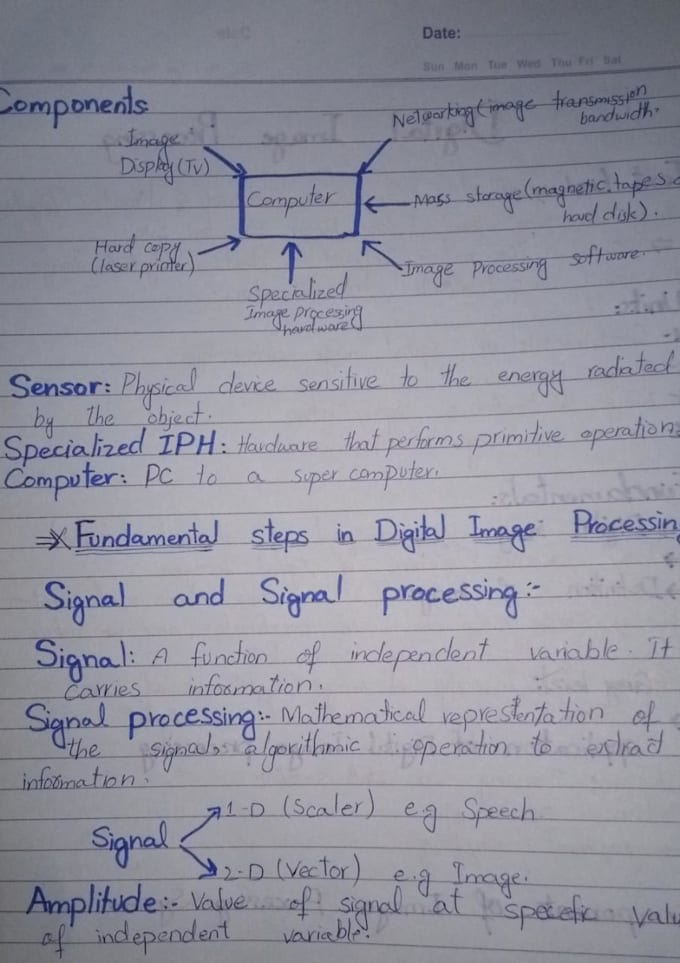 Date:
Sun Mon Tue Wed Thu Fri Sat
Components
Image
Display (TV)
Networking (image transmission
bandwidth.
Computer
Mass storage (magnetic tapes
hard disk).
Hard copy
(laser printer)
Image Processing software.
Specialized
Image processing
hardware
Sensor: Physical device sensitive to the energy radiated
by the object.
Specialized IPH: Hardware that performs primitive operation
Computer: PC to a super computer.
⇒ Fundamental steps in Digital Image Processin
Signal and Signal processing:-
Signal: A function of independent variable. It
carries information.
Signal processing:- Mathematical representation of
the signal, algorithmic operation to extract
information.
Signal
1-D (Scaler) e.g Speech
2-D (Vector) e.g Image.
Amplitude:- Value of signal at specefic valu
of independent variable.